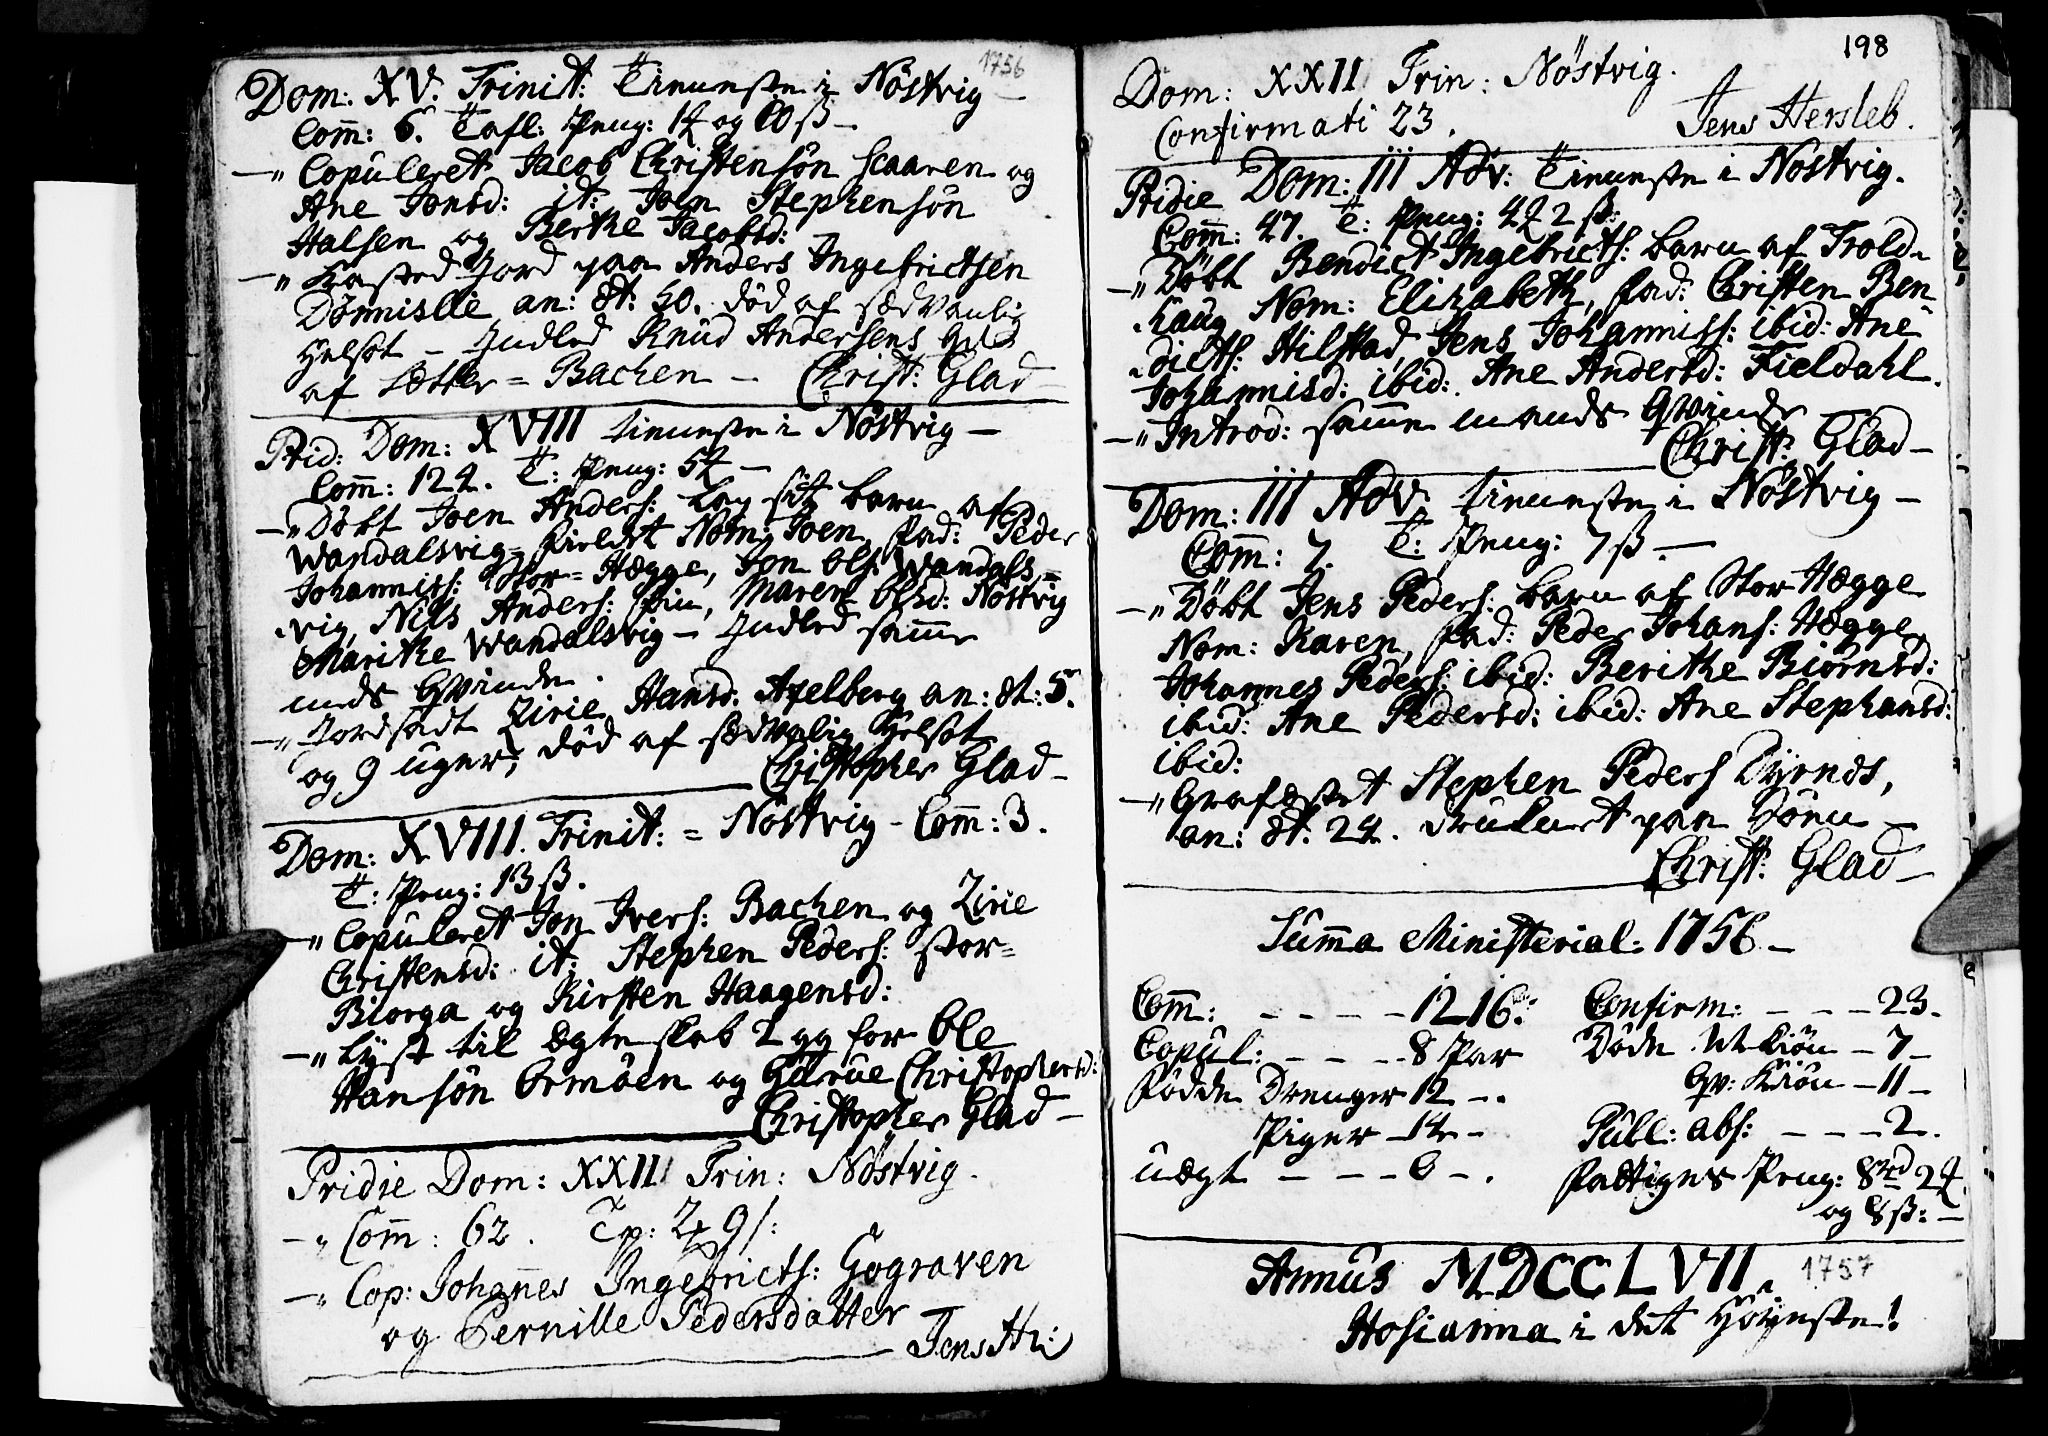 1756
Dom: XV. Trinit: Tienesten i Nöstvig –
Com̄: 6. Tafl: Peng: 1 og 10 ß –
–" Copuleret Jacob Christensön Scaaren og
Ane Jonsd: it: Joen Stephensön
Halsen og Berthe Jacobsd:
–" Kasted Jord paa Anders Ingebrictsen
Dönnislie an: æt: 50. död af sædvanlig
Helsot – Indled Knud Andersens
af Bachen – Christ: Glad –
Prid: Dom: XVIII tienesten i Nöstvig –
Com̄: 124. T: Peng: 5 –
–" Döbt Joen Anders: barn af
Wandalsvig Nom: Joen, Fad: Peder
Johannisf: Stor=Hægge, Jon Olf: Wandals=
vig, Nils Andersf: , Maren Olsd: Nöstvig
Marithe Wandalsvig – Indled sam̄e
mds Qvinde.
–" Jordsadt Zirie Hansd: Axelberg an: æt: 5.
og 9 uger, död af sædvalig Helsot
Christopher Glad –
Dom: XVIII. Trinit: = Nöstvig – Com̄: 3.
T: Peng: 13 ß.
–" Copuleret Jon Iversf: Bachen og Zirie
Christensd: it: Stephen Pedersf: Stor=
Biorga og Kirsten Haagensd:
–" Lyst til Ægteskab 2 gg for Ole
Hansön Ormöen og Gurue Christophersd:
Christopher Glad –
Pridie Dom: XXII Trin: Nöstvig.
–" Com̄: 62. Tp: 2 9 ß:
–" Cop: Johan̄es Ingebrictsf: Gograven
og Pernille Pedersdatter
Jens H:
198
Dom: XXII Trin: Nöstvig.
Confirmati 23.
Jens Hersleb.
Pridie Dom: III Adv: Tienesten i Nöstvig.
Com̄: 47. T: Peng: 4 2 ß:
–" Döbt Bendict Ingebrictsf: barn af Trold=
haug Nom: Elizabeth, Fad: Christen Ben
dictsf: Hilstad, Jens Johannisf: ibid: Ane
Johannisd: ibid: Ane Andersd: Fieldahl.
–" Introd: sam̄e mands Qvinde
Christ: Glad –
Dom: III Adv: tienesten i Nöstvig –
Com̄: 7. T: Peng: 7 ß –
–" Döbt Jens Pedersf: barn af Stor Hægge
Nom: Karen, Fad: Peder Johansf: Hægge,
Johannes Pedersf: ibid: Berithe Biörnsd:
ibid: Ane Pedersd: ibid: Ane Stephansd:
ibid:
–" Grafæstet Stephen Pedersf Dyrnds,
an: æt: 24. druknet paa Söen –
Christ: Glad –
Sum̄a Ministerial: 1756 –
Com̄: – – – – 1216: Confirm: – – – 23.
Copul: – – – 8 Par Döde M: Kiön – 7 –
Födde Drenger 12 –. Qv: Kiön – 11 –
Piger – 14 – Publ: abs: – – – 2.
uægt – – – 0 –. Fattiges Peng: 8 rd 2
og 8 ß: –
Annus MDCCLVII. 1757
Hosianna i det Höyeste!